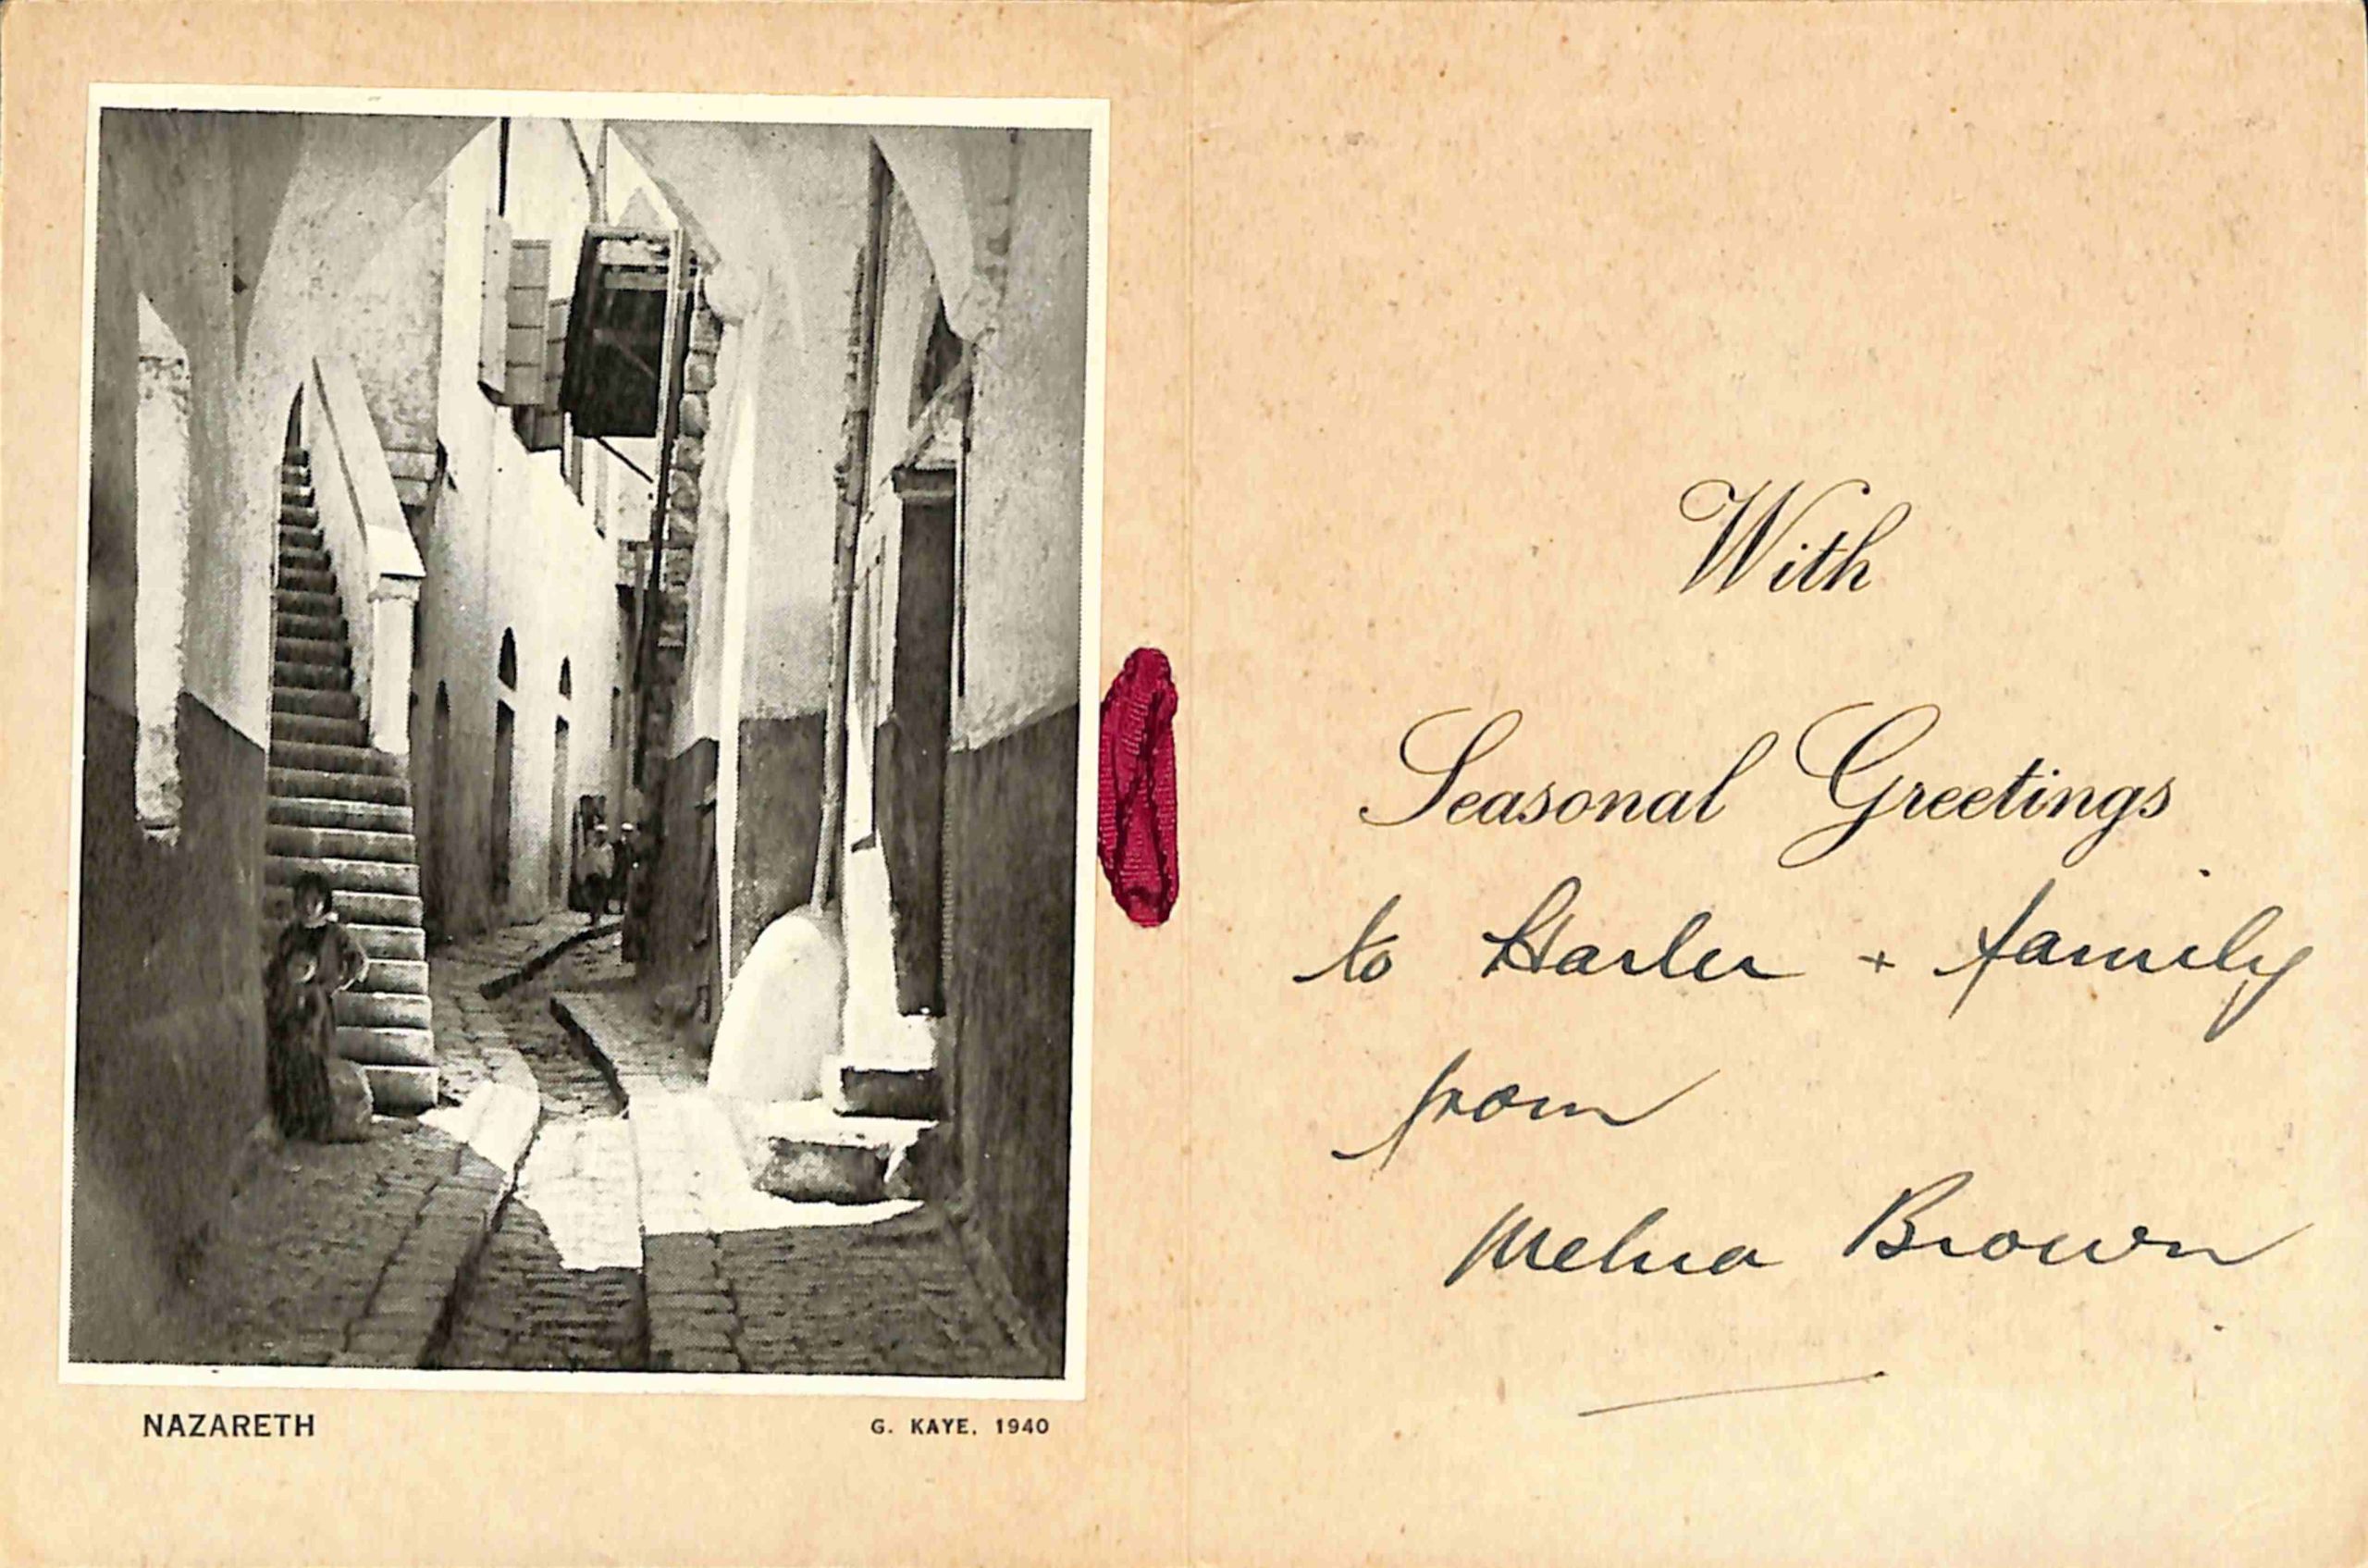 NAZARETH
G. KAYE. 1940
With
Seasonal Greetings
to + family
from
Melva Brown